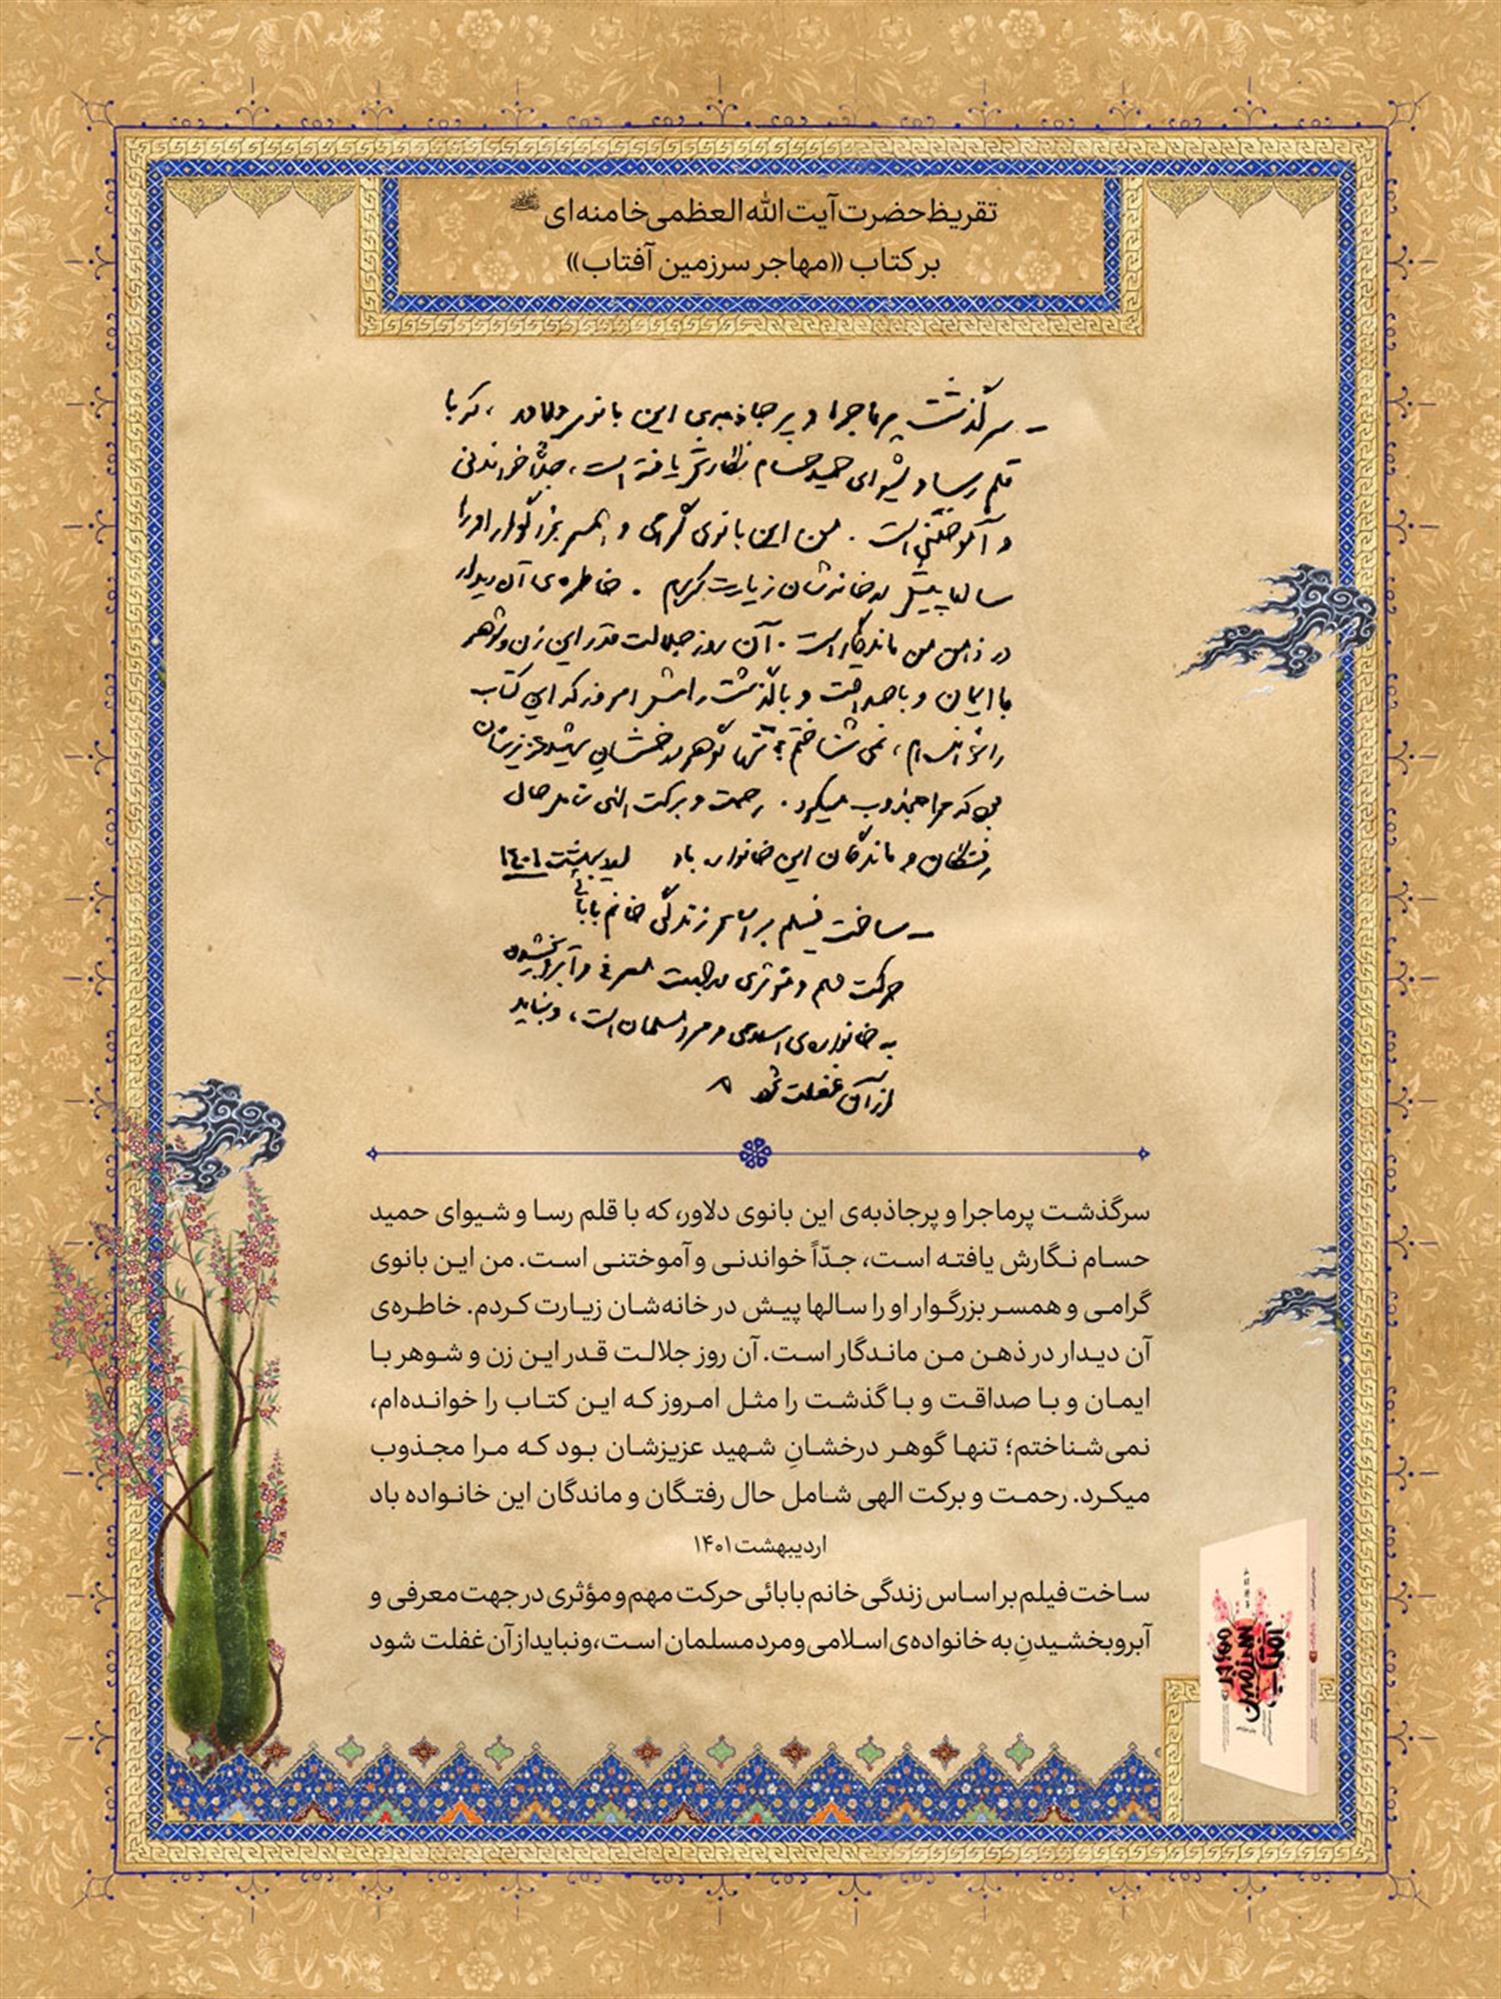 تقریظ حضرت آیت‌الله العظمی خامنه‌ای
بر کتاب «مهاجر سرزمین آفتاب»
ـ سرگذشت پرماجرا و پرجاذبه‌ی این بانوی دلاور، که با
قلم رسا و شیوای حمید حسام نگارش یافته است، جدّاً خواندنی
و آموختنی است. من این بانوی گرامی و همسر بزرگوار او را
سالها پیش در خانه‌شان زیارت کردم. خاطره‌ی آن دیدار
در ذهن من ماندگار است. آن روز جلالت قدر این زن و شوهر
با ایمان و با صداقت و با گذشت را مثل امروز که این کتاب
را خوانده‌ام، نمی‌شناختم؛ تنها گوهر درخشانِ شهید عزیزشان
بود که مرا مجذوب میکرد. رحمت و برکت الهی شامل حال
رفتگان و ماندگان این خانواده باد اردیبهشت ۱۴۰۱
ـ ساخت فیلم بر اساس زندگی خانم بابائی
حرکت مهم و مؤثری در جهت معرفی و آبرو بخشیدن
به خانواده‌ی اسلامی و مرد مسلمان است، و نباید
از آن غفلت شود
سرگذشت پرماجرا و پرجاذبه‌ی این بانوی دلاور، که با قلم رسا و شیوای حمید
حسام نگارش یافته است، جدّاً خواندنی و آموختنی است. من این بانوی
گرامی و همسر بزرگوار او را سالها پیش در خانه‌شان زیارت کردم. خاطره‌ی
آن دیدار در ذهن من ماندگار است. آن روز جلالت قدر این زن و شوهر با
ایمان و با صداقت و با گذشت را مثل امروز که این کتاب را خوانده‌ام،
نمی‌شناختم؛ تنها گوهر درخشانِ شهید عزیزشان بود که مرا مجذوب
میکرد. رحمت و برکت الهی شامل حال رفتگان و ماندگان این خانواده باد
اردیبهشت ۱۴۰۱
ساخت فیلم بر اساس زندگی خانم بابائی حرکت مهم و مؤثری در جهت معرفی و
آبرو بخشیدنِ به خانواده‌ی اسلامی و مرد مسلمان است، و نباید از آن غفلت شود
مهاجر
سرزمین
آفتاب